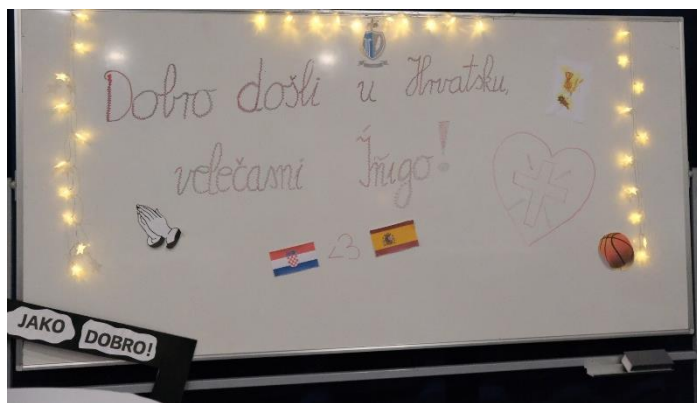 Dobro došli u Hrvatsku,
velečasni Íñigo!
<3
JAKO
DOBRO!